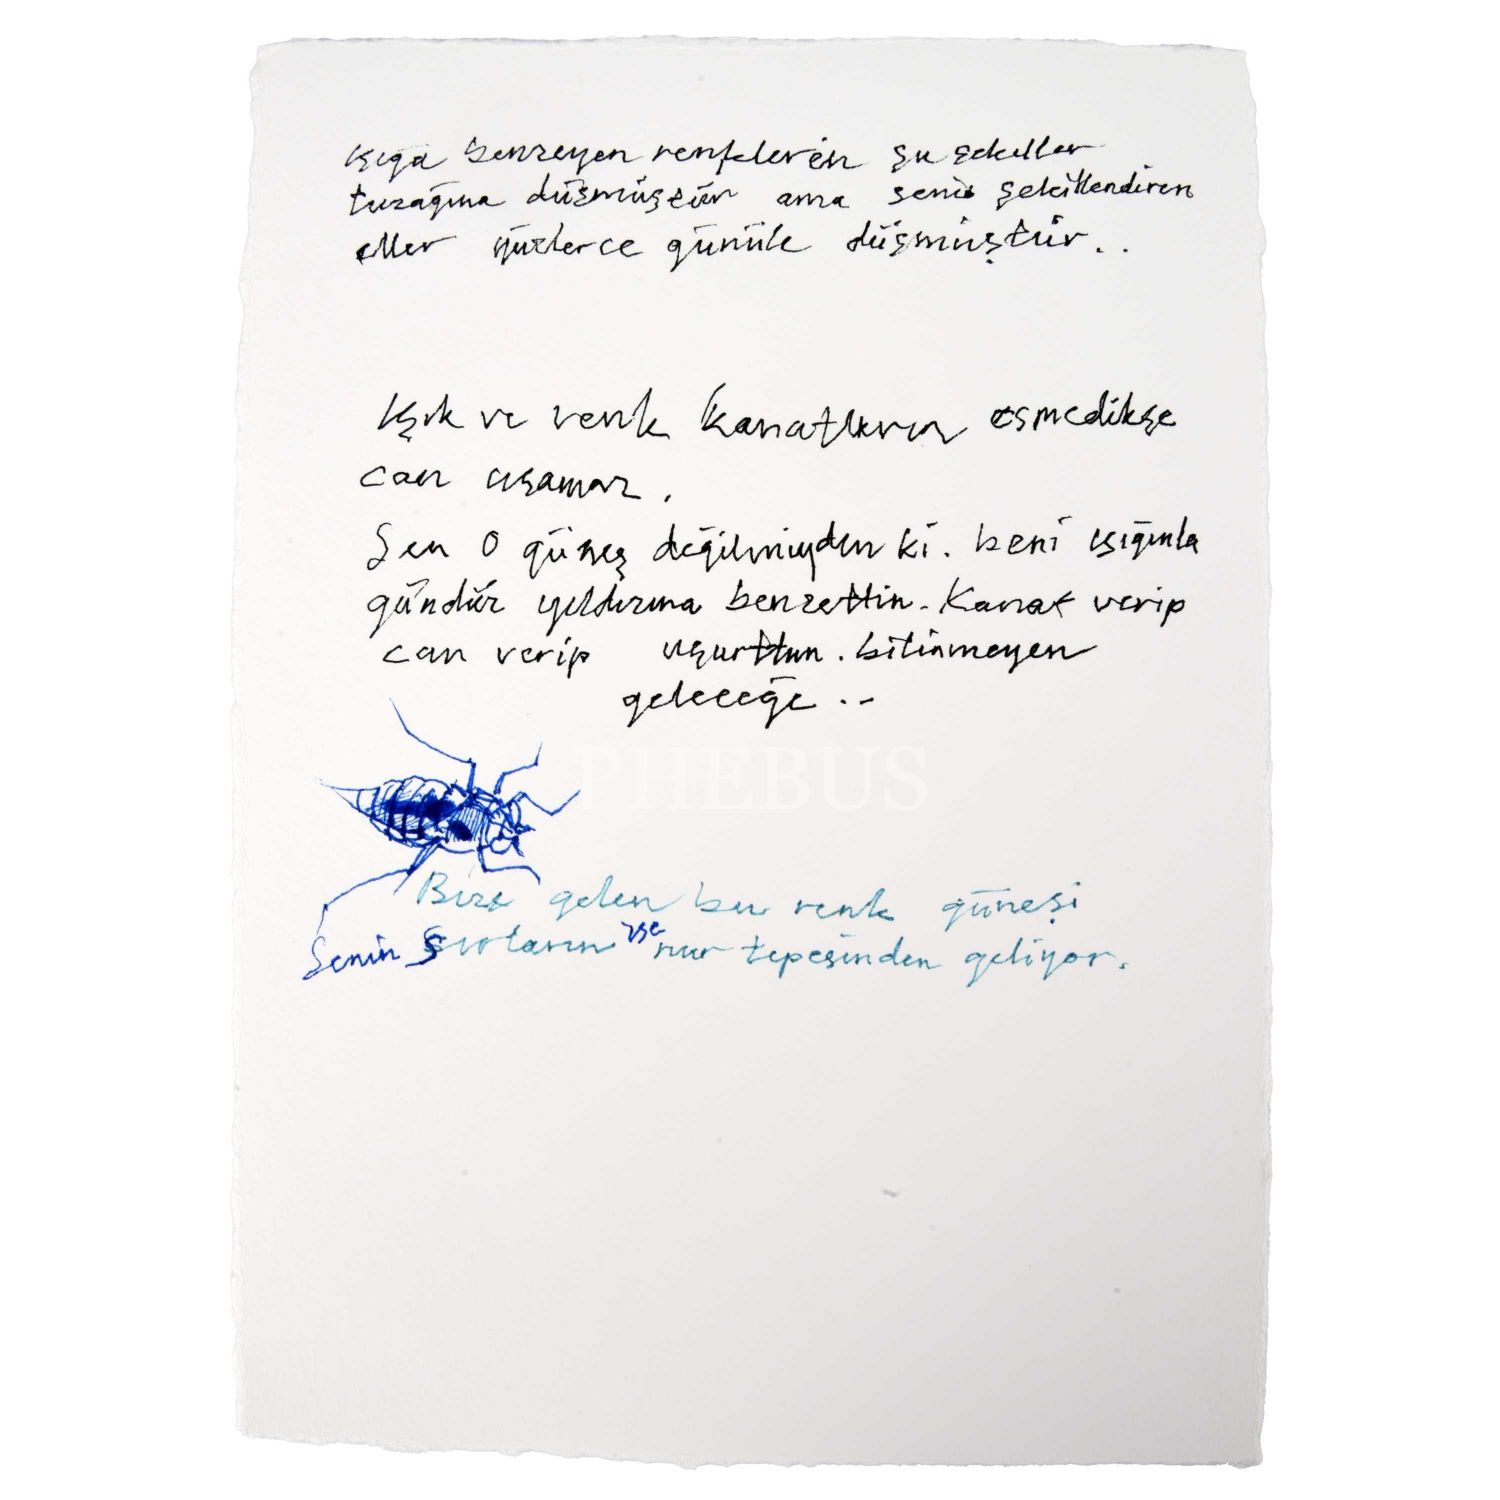 ışığa benzeyen renklerin şu şekiller
tuzağına düşmüştür ama seni şekillendiren
eller yüzlerce günüle düşmüştür..
Işık ve renk kanatların esmedikçe
can uçamaz.
Sen O güneş değilmiydin ki. beni ışığınla
gündüz yıldızına benzettin. Kanat verip
can verip uçurttun. bilinmeyen
geleceğe ..
PHEBUS
Bize gelen bu renk güneşi
Senin ise nur tepesinden geliyor.